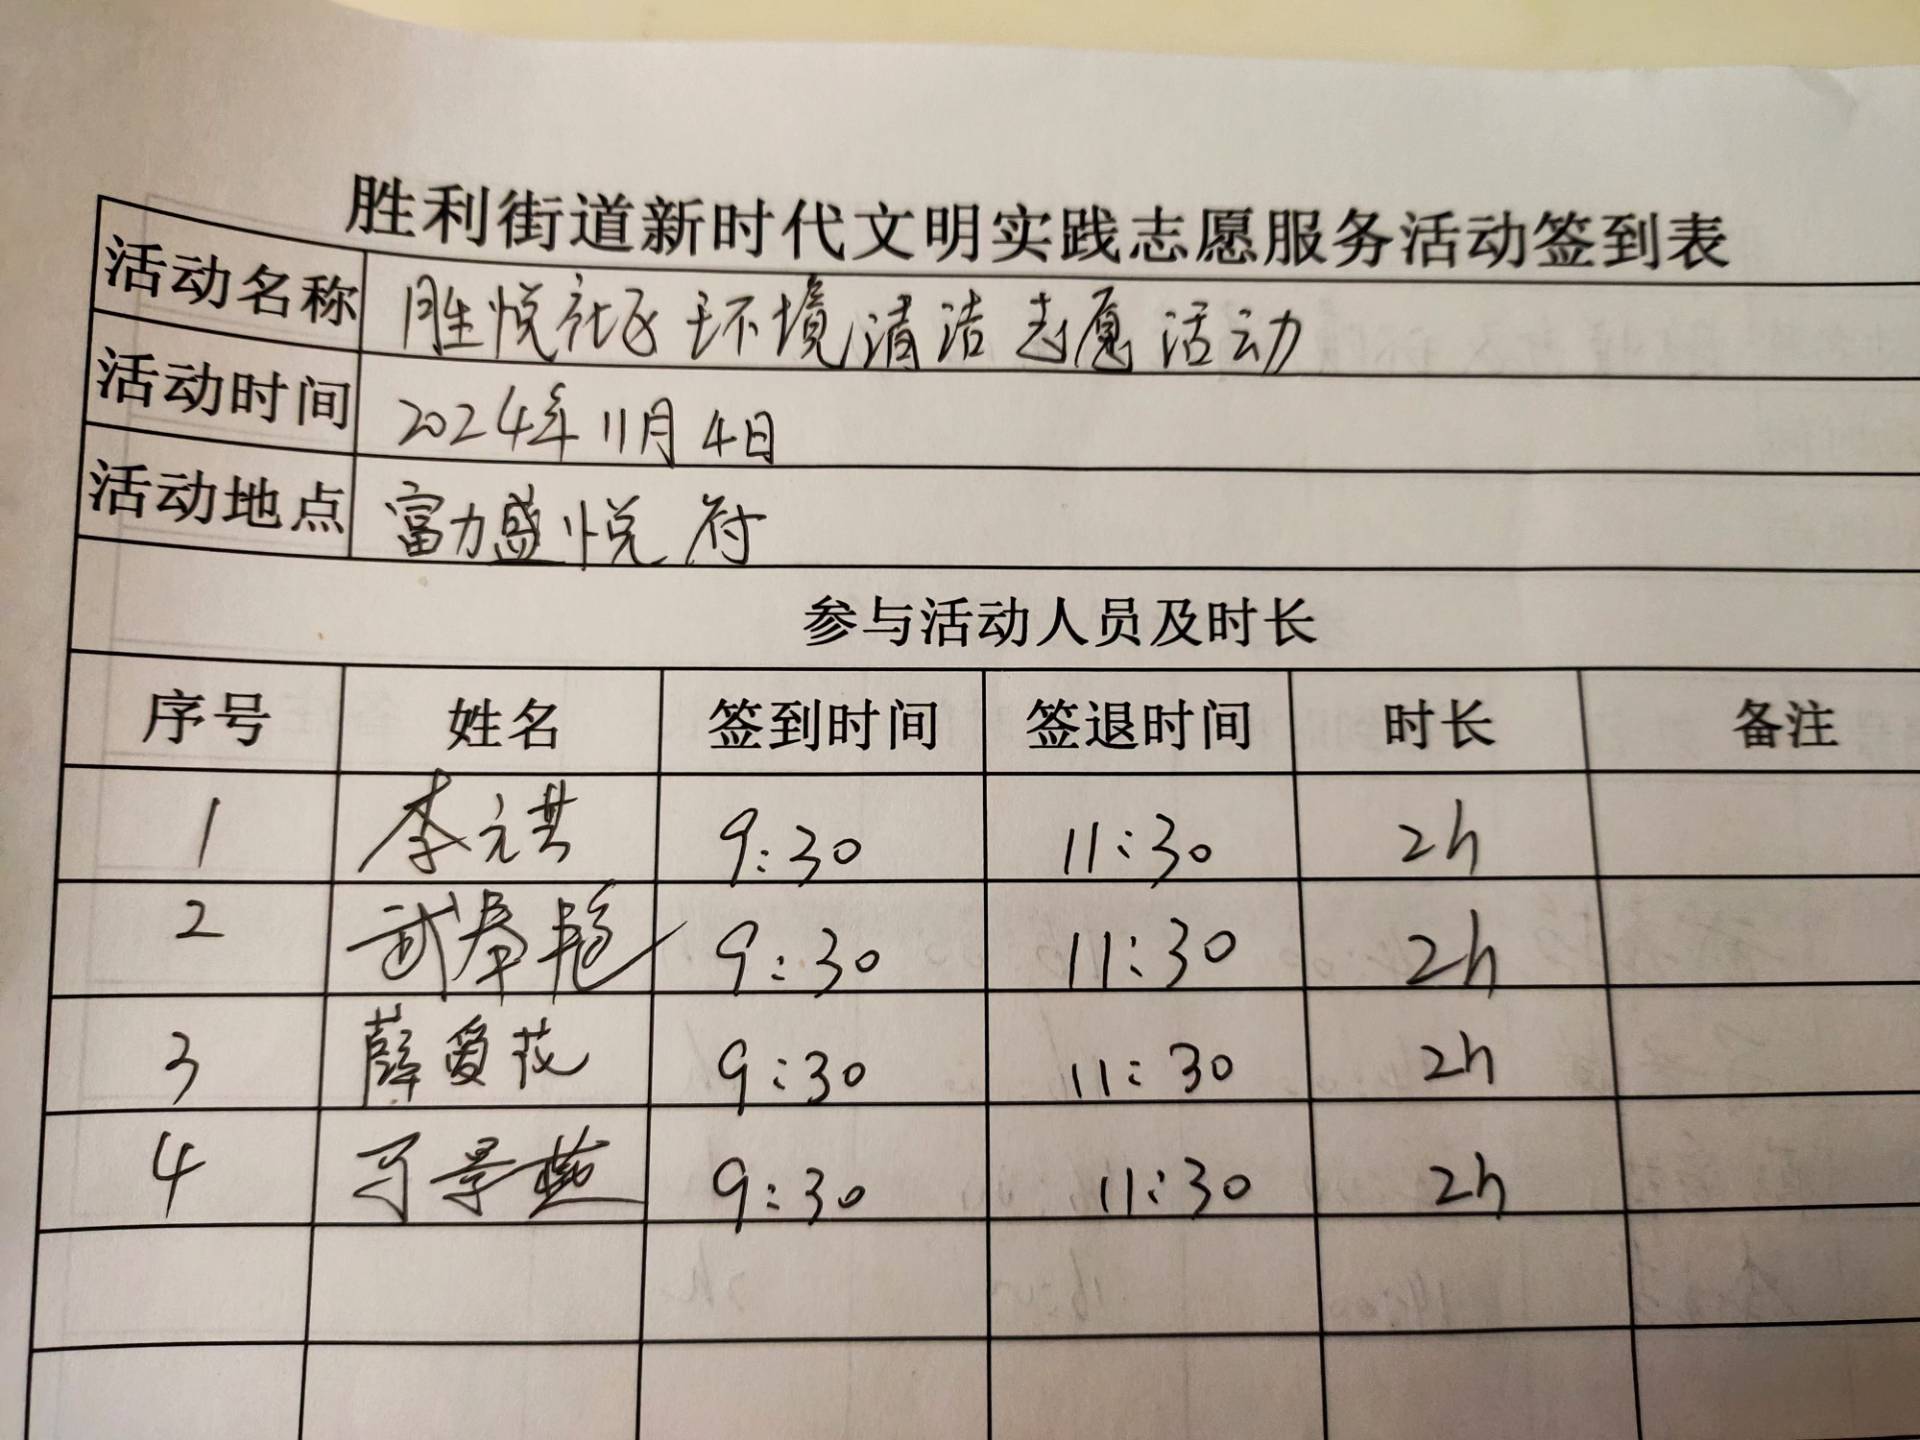 胜利街道新时代文明实践志愿服务活动签到表
活动名称 胜悦社区环境清洁志愿活动
活动时间 2024年11月4日
活动地点 富力盛悦府
参与活动人员及时长
序号 姓名 签到时间 签退时间 时长 备注
1 李元洪 9:30 11:30 2h
2 武春艳 9:30 11:30 2h
3 薛爱花 9:30 11:30 2h
4 景燕 9:30 11:30 2h